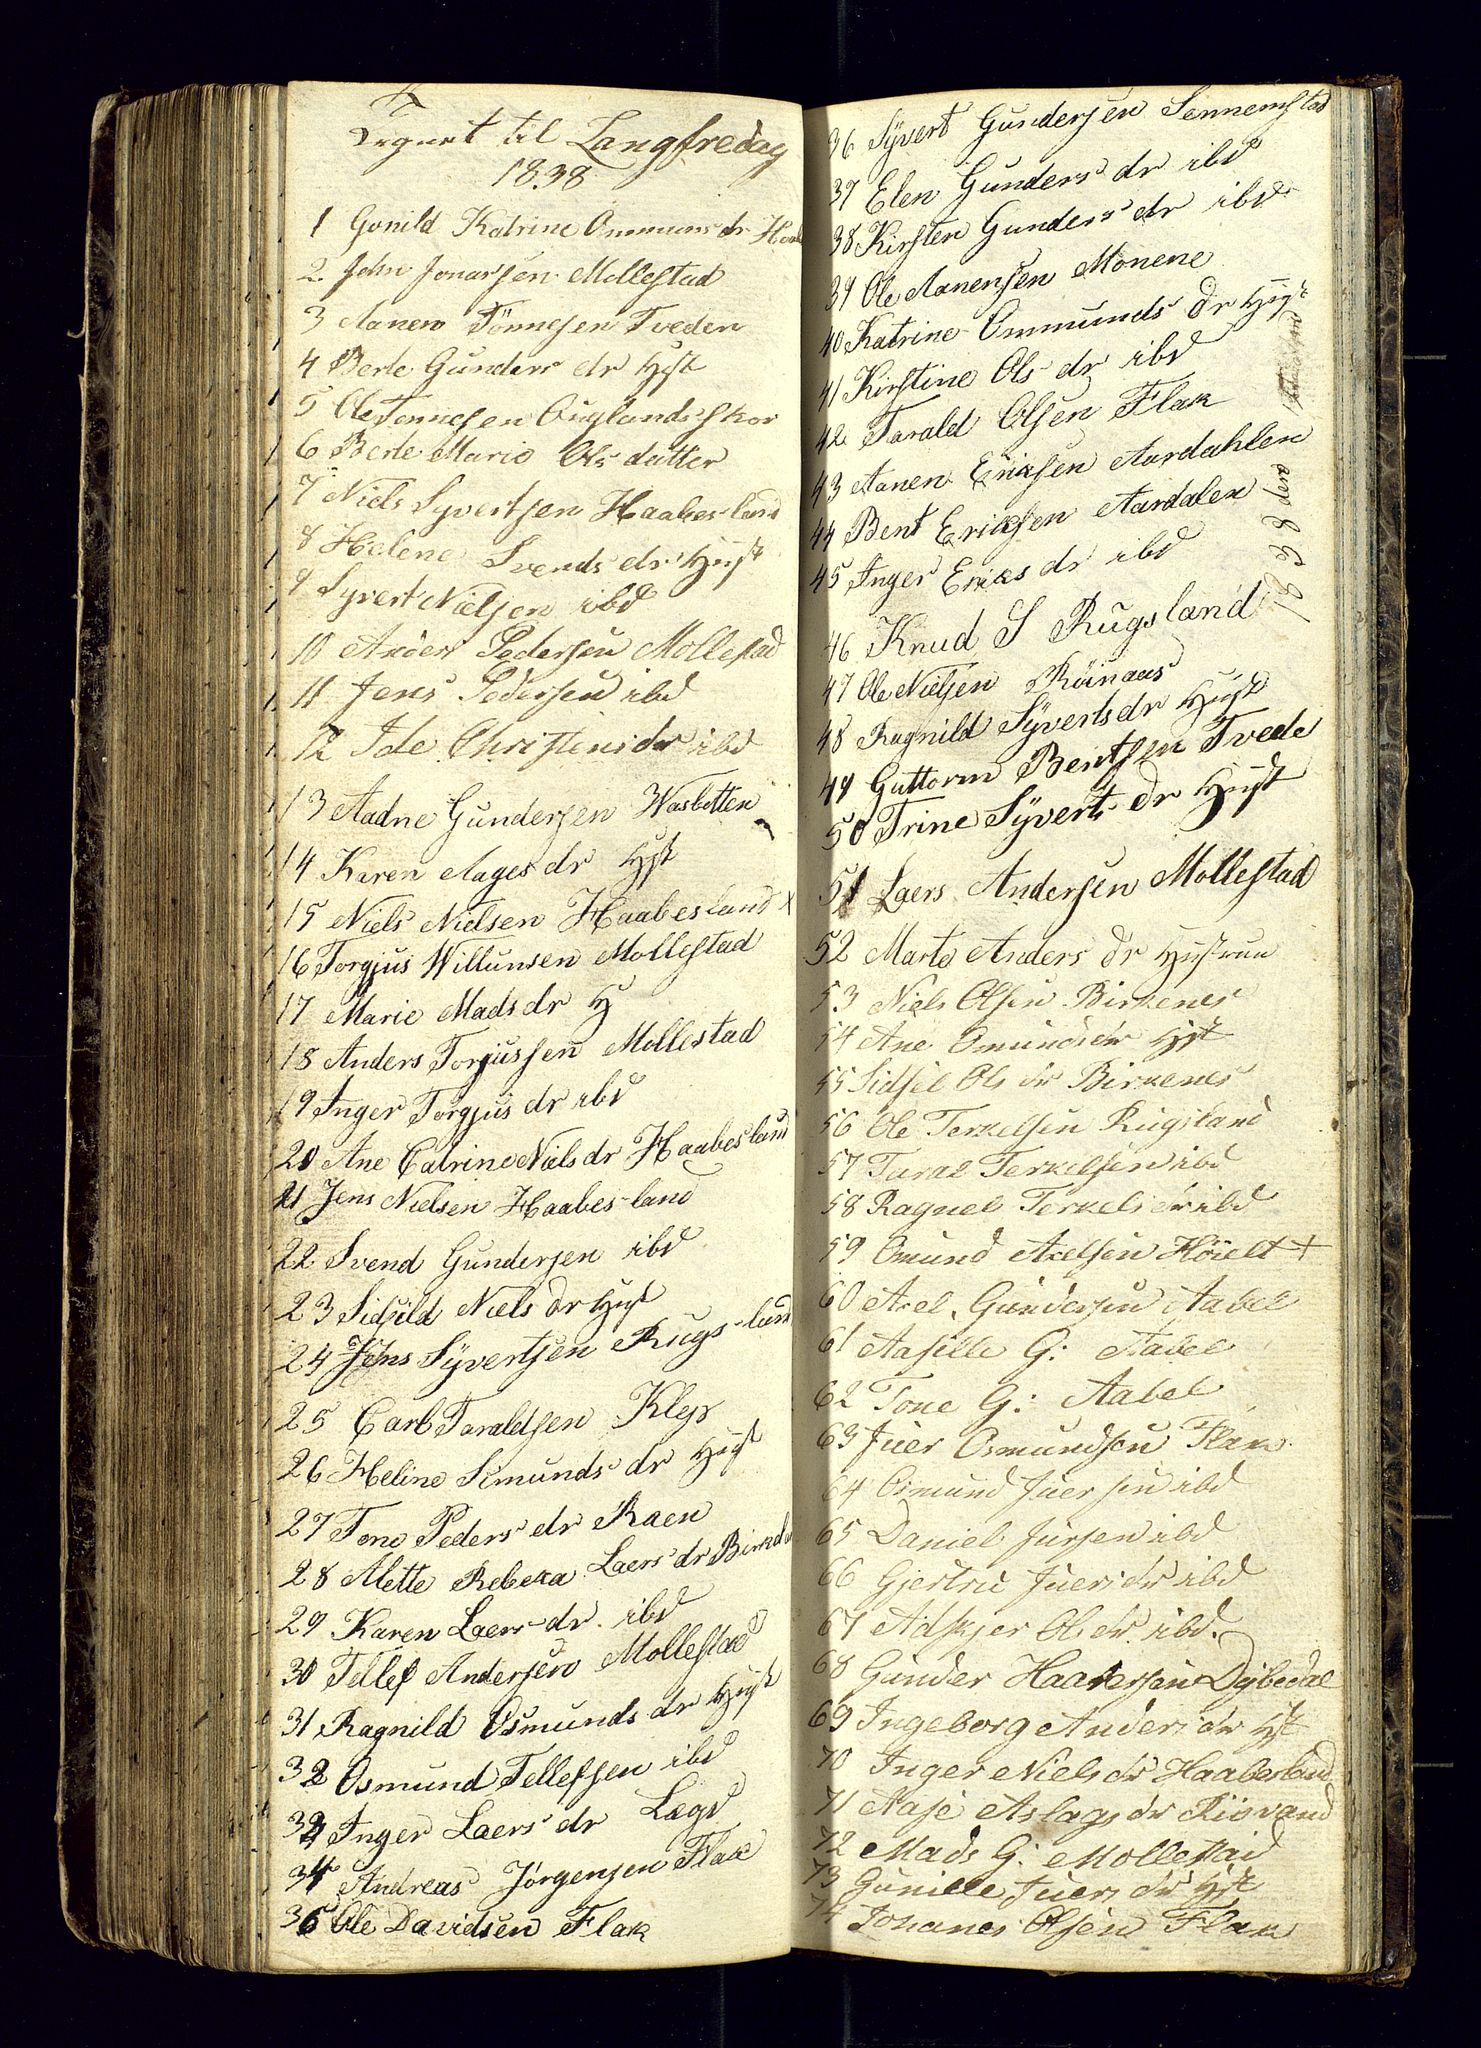 Tegnet til Langfredag
1838
1 Gonild Katrine Ommunsdr
2 John Jonassen Mollestad
3 Aanen Tönnesen Tveden
4 Berte Gunders dr Hst
5 Ole Tonnesen Ouglandsskor
6 Berte Marie Ols datter
7 Niels Syvertsen Haabesland
8 Helene Svends dr Hust
9 Syvert Nielsen ibd
10 Anders Pedersen Mollestad
11 Jens Pedersen ibd
12 Ide Christensdr ibd
13 Aadne Gundersen Wasbotten
14 Karen Aagesdr Hst
15 Niels Nielsen Haabesland x
16 Torgjus Willumsen Mollestad
17 Marie Madsdr H
18 Anders Torjussen Mollestad
19 Inger Torgjusdr ibd
20 Ane Catrine Nielsdr Haabesland
21 Jens Nielsen Haabes-land
22 Svend Gundersen ibd
23 Sidsild Niels dr Hust
24 Jens Syvertsen Rugs-land
25 Carl Taraldsen Klep
26 Heline Simunds dr Hust
27 Tone Peders dr Raen
28 Mette Rebeka Laers dr
29 Karen Laers dr ibd
30 Tellef Andersen Mollestad
31 Ragnild Osmunds dr Hust
32 Osmund Tellefsen ibd
33 Inger Laers dr Lægd
34 Andreas Jörgensen Flak
35 Ole Davidsen Flak
36 Syvert Gundersen Sennemstad
37 Elen Gunders dr ibd
38 Kirsten Gunders dr ibd
39 Ole Aanensen Monene
40 Katrine Ommunds dr Hust
41 Kirstine Ols dr ibd
42 Tarald Olsen Flak
43 Aanen Eriksen Aardahlen
44 Bent Eriksen Aardalen
45 Inger Eriks dr ibd
1838 den
46 Knud S Rugsland
47 Ole Nielsen Röinaas
48 Ragnild Syvertsdr Hust
49 Guttorm Bentsen Tvede
50 Trine Syverts dr Hust
51 Laers Andersen Mollestad
52 Marte Anders dr Hustrue
53 Niels Olsen Birkenes
54 Ane Omundsdr Hst
55 Sidsel Ols dr Birkenes
56 Ole Terkelsen Rugsland
57 Taral Terkelsen ibd
58 Ragnel Terkelsdr ibd
59 Omund Axelsen Höielt +
60 Axel Gundersen Aabel
61 Aasille G: Aabel
62 Tone G: Aabel
63 Juer Osmundsen Flak
64 Osmund Juersen ibd
65 Daniel Jursen ibd
66 Gjertru Juersdr ibd
67 Adskjer Olsdr ibd.
68 Gunder Haaversen Dybedal
69 Ingeborg Andersdr Hst
70 Inger Nielsdr Haabesland
71 Aase Aslagsdr Risvand
72 Mads G: Mollestad
73 Gunille Juersdr Hst
74 Johanes Olsen Flak